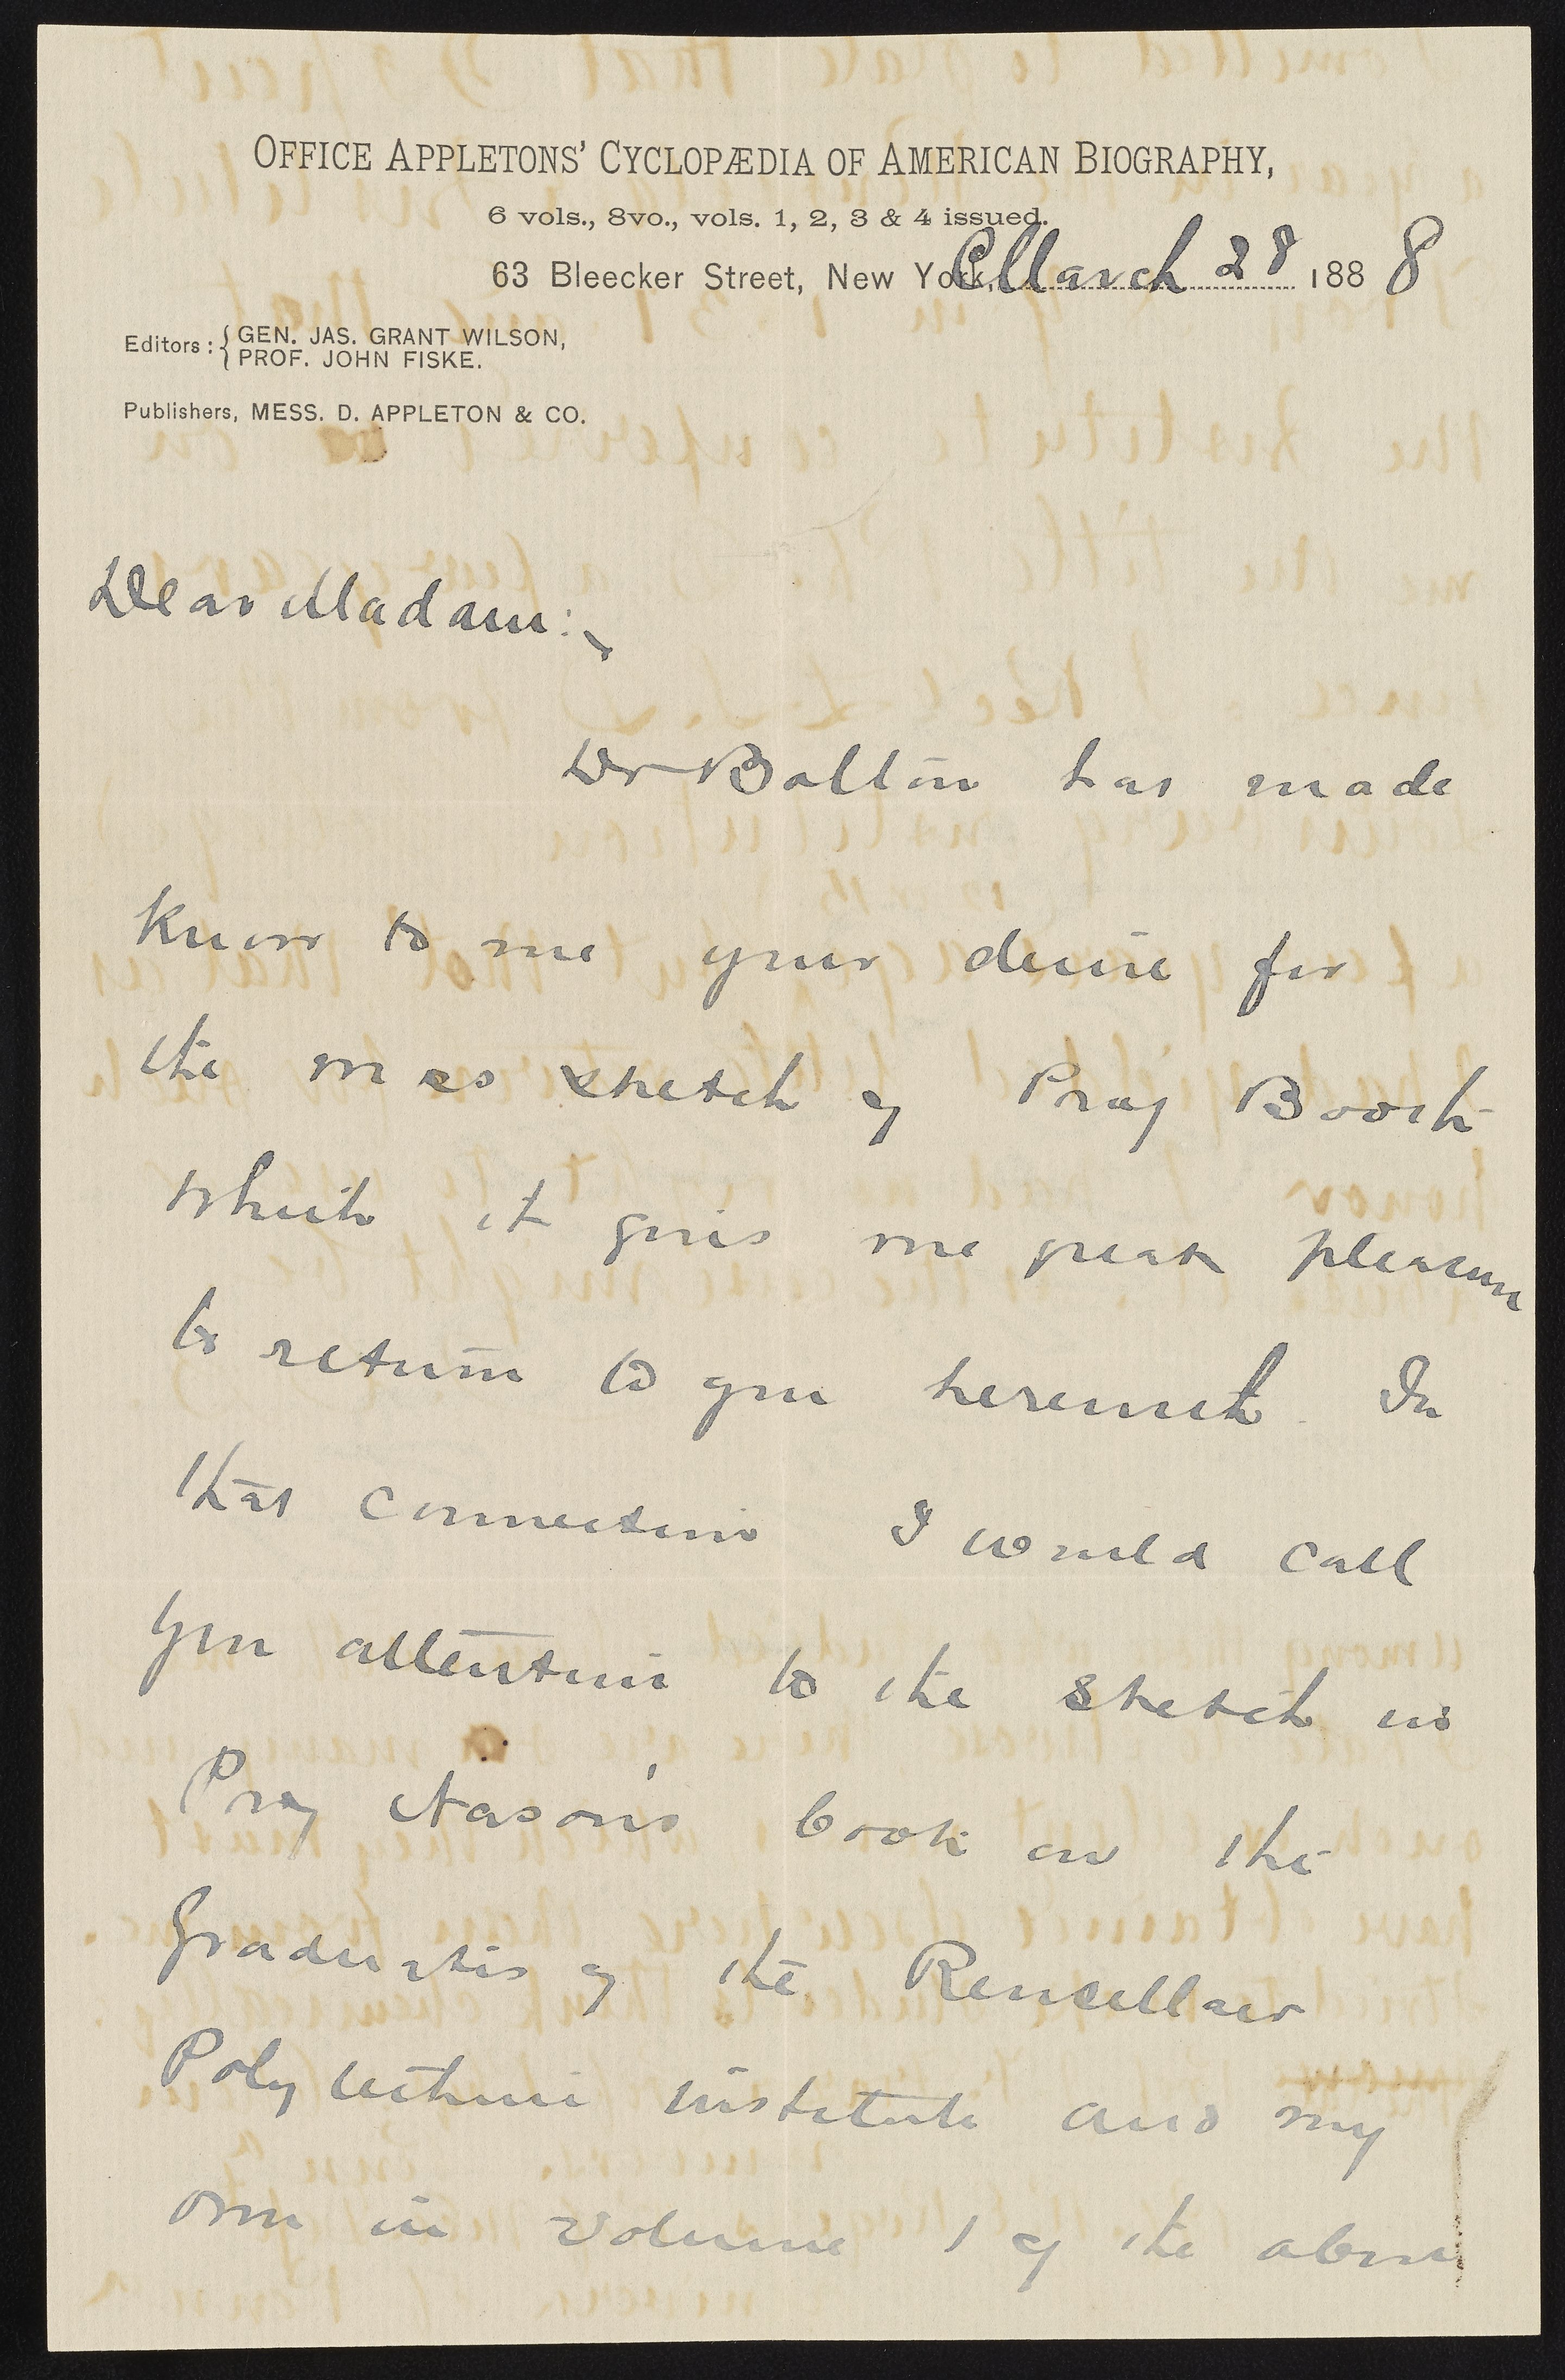 OFFICE APPLETONS' CYCLOPÆDIA OF AMERICAN BIOGRAPHY,
6 vols., 8vo., vols. 1, 2, 3 & 4 issued.
63 Bleecker Street, New York, March 28 1888
Editors: { GEN. JAS. GRANT WILSON,
PROF. JOHN FISKE.
Publishers, MESS. D. APPLETON & CO.
Dear Madam:
Dr Bolton has made
know to me your desire for
the mss sketch of Prof Booth
which it gives me great pleasure
to return to you herewith. In
that connection I would call
you attention to the sketch in
Prof Nason's book on the
graduates of the Rensellaer
Polytechnic institute and my
own in volume 1 of the above